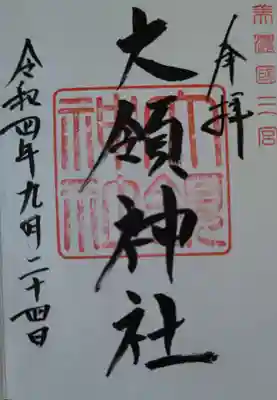 美濃國二宮
奉拝
大領神社
大領
神社
令和四年九月二十四日